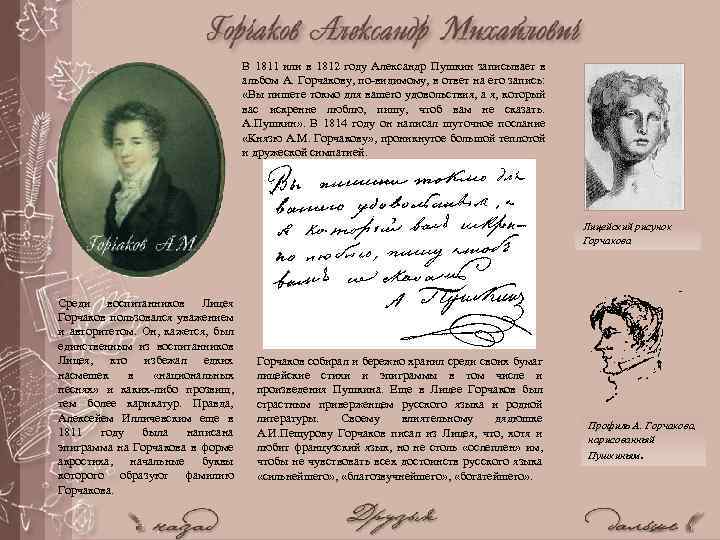 Горчаков Александр Михайлович
В 1811 или в 1812 году Александр Пушкин записывает в
альбом А. Горчакову, по-видимому, в ответ на его запись:
«Вы пишете токмо для вашего удовольствия, а я, который
вас искренне люблю, пишу, чтоб вам не сказать.
А.Пушкин» . В 1814 году он написал шуточное послание
«Князю А.М. Горчакову» , проникнутое большой теплотой
и дружеской симпатией.
Горчаков А.М.
Вы пишите токмо для
вашего удовольствия, а
я который васъ искрен-
но люблю, пишу чтобъ
вамъ не сказать
А Пушкинъ
Лицейский рисунок
Горчакова
Среди воспитанников Лицея
Горчаков пользовался уважением
и авторитетом. Он, кажется, был
единственным из воспитанников
Лицея, кто избежал едких
насмешек в «национальных
песнях» и каких-либо прозвищ,
тем более карикатур. Правда,
Алексеем Илличевским еще в
1811 году была написана
эпиграмма на Горчакова в форме
акростиха, начальные буквы
которого образуют фамилию
Горчакова.
Горчаков собирал и бережно хранил среди своих бумаг
лицейские стихи и эпиграммы в том числе и
произведения Пушкина. Еще в Лицее Горчаков был
страстным приверженцем русского языка и родной
литературы. Своему влиятельному дядюшке
А.И.Пещурову Горчаков писал из Лицея, что, хотя и
любит французский язык, но не столь «ослеплен» им,
чтобы не чувствовать всех достоинств русского языка
«сильнейшего» , «благозвучнейшего» , «богатейшего» .
Профиль А. Горчакова,
нарисованный
Пушкиным.
назад
Друзья
дальше